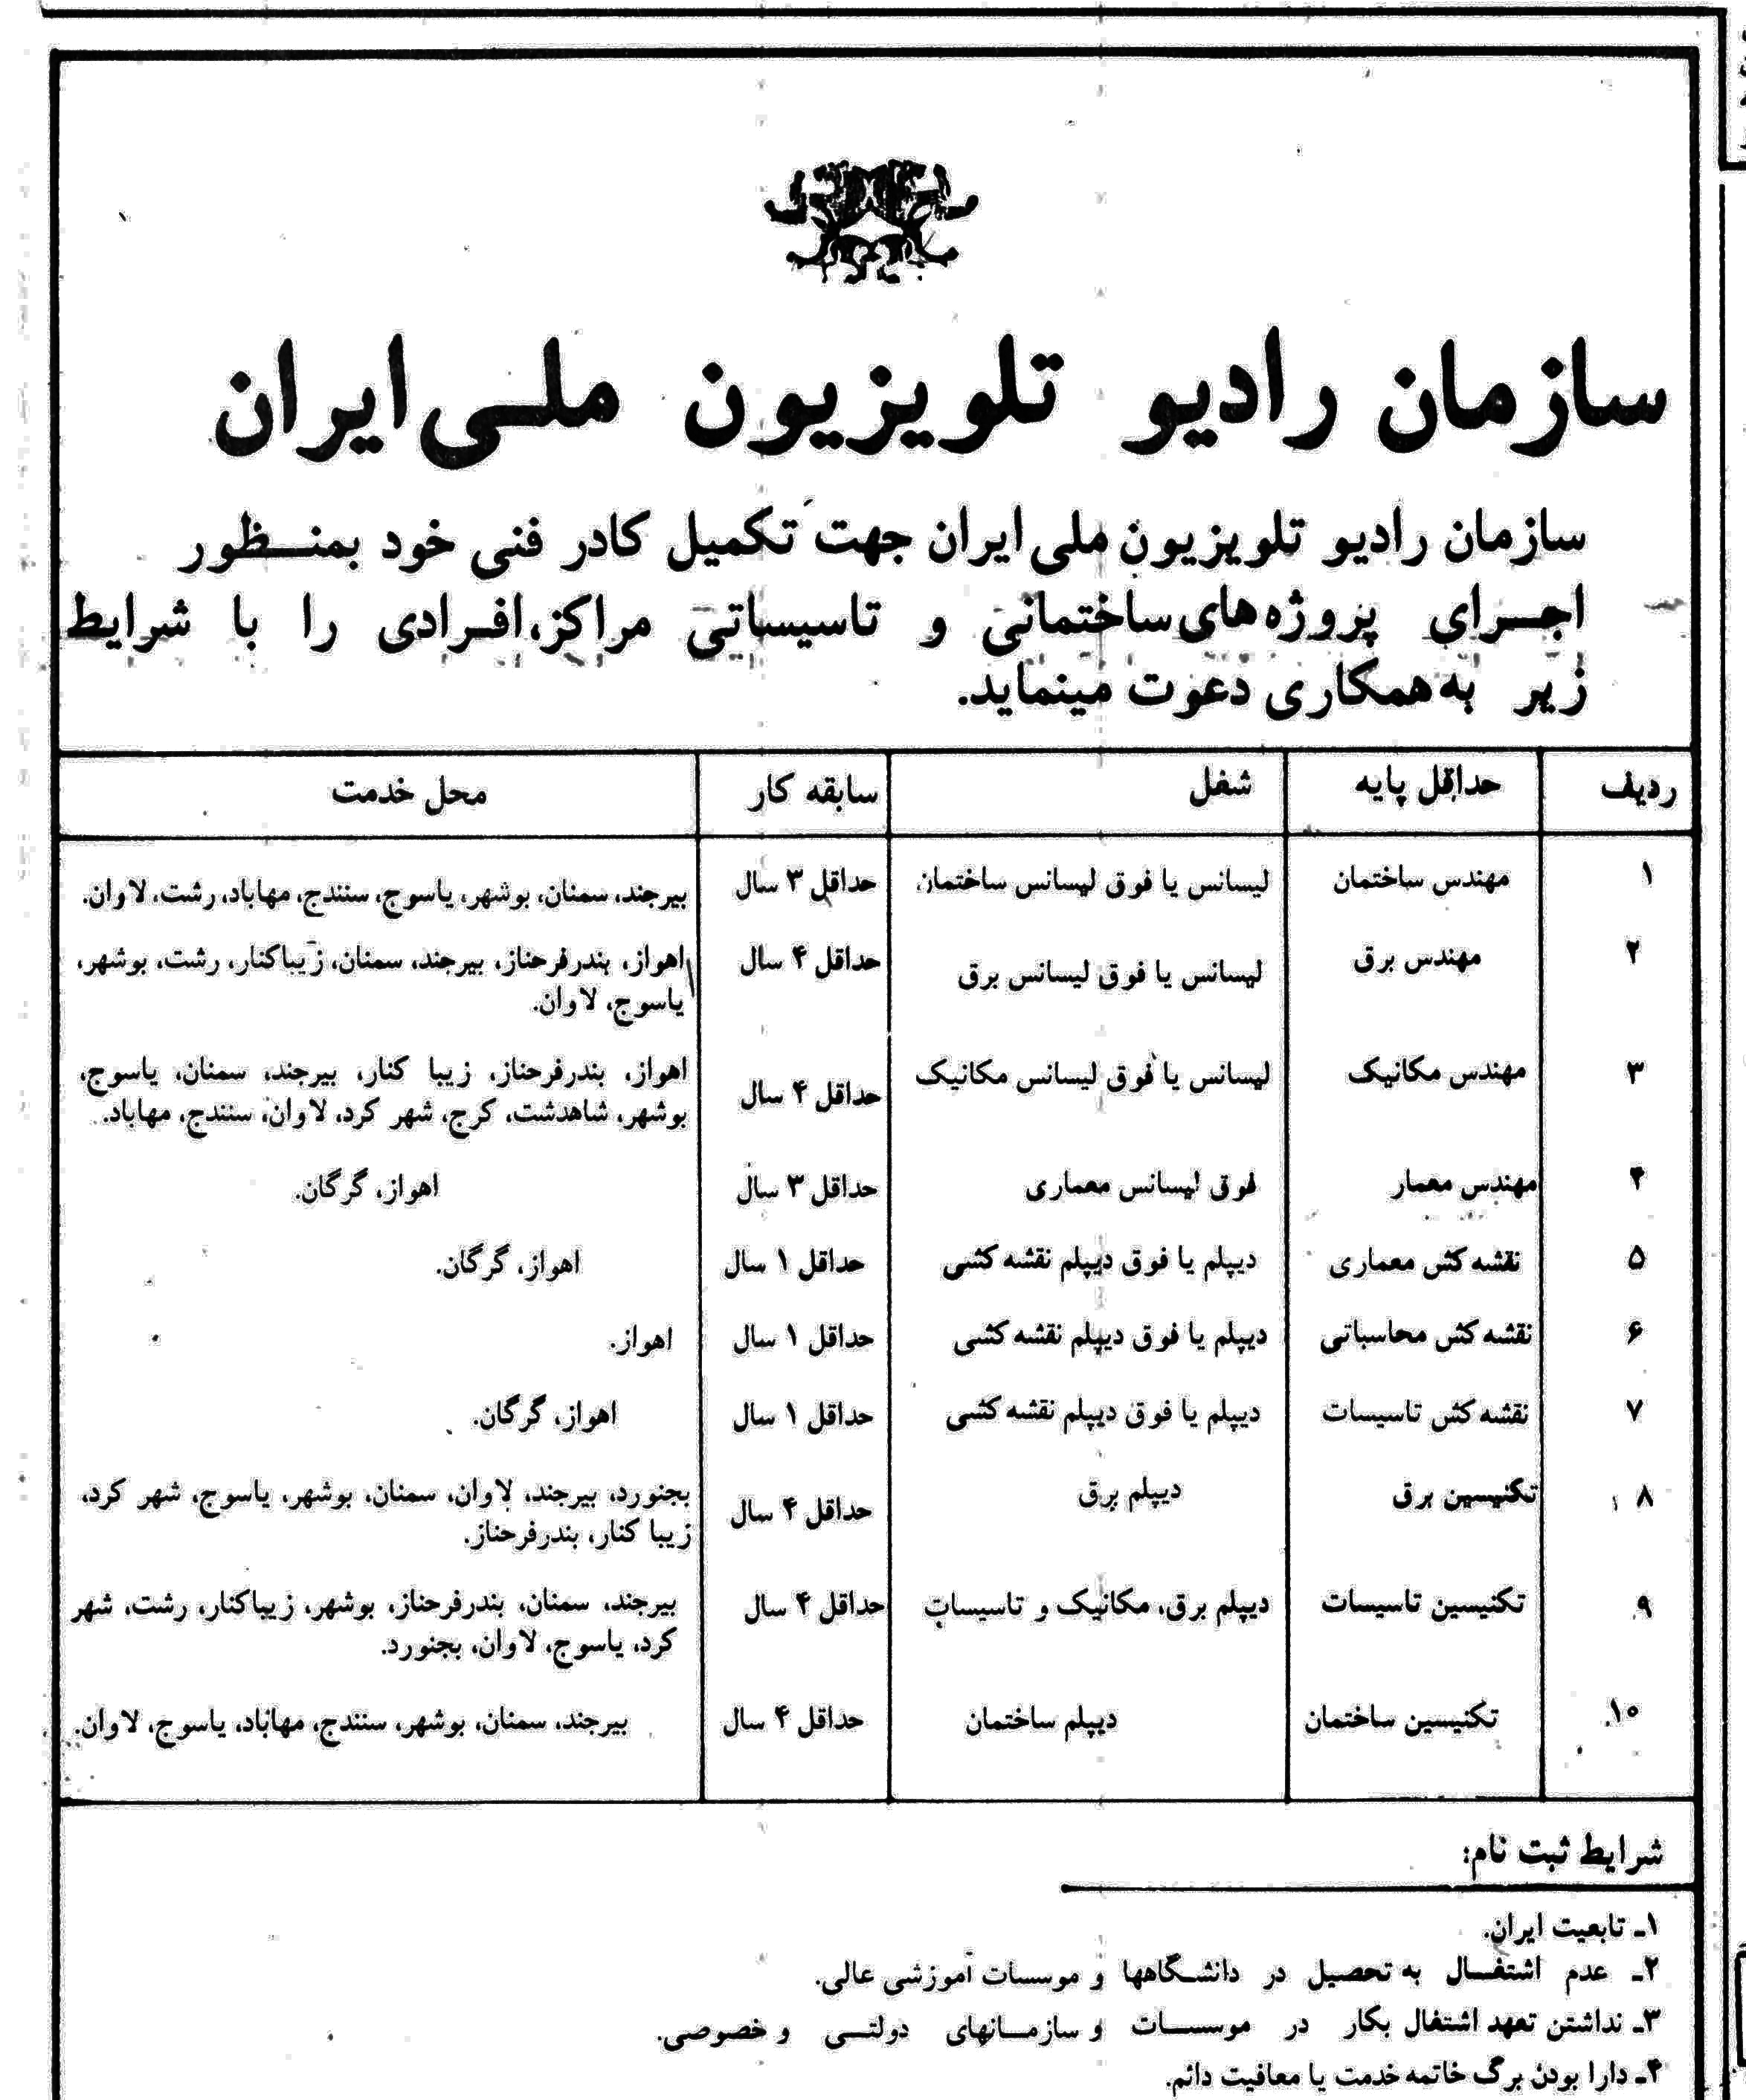 سازمان رادیو تلویزیون ملی ایران
سازمان رادیو تلویزیون ملی ایران جهت تکمیل کادر فنی خود بمنظور
اجرای پروژه های ساختمانی و تاسیساتی مراکز، افرادی را با شرایط
زیر به همکاری دعوت مینماید.
ردیف حداقل پایه شغل سابقه کار محل خدمت
۱ مهندس ساختمان لیسانس یا فوق لیسانس ساختمان حداقل ۳ سال بیرجند، سمنان، بوشهر، یاسوج، سنندج، مهاباد، رشت، لاوان.
۲ مهندس برق لیسانس یا فوق لیسانس برق حداقل ۴ سال اهواز، بندرفرحناز، بیرجند، سمنان، زیباکنار، رشت، بوشهر،
یاسوج، لاوان.
۳ مهندس مکانیک لیسانس یا فوق لیسانس مکانیک حداقل ۴ سال اهواز، بندرفرحناز، زیبا کنار، بیرجند، سمنان، یاسوج،
بوشهر، شاهدشت، کرج، شهر کرد، لاوان، سنندج، مهاباد.
۴ مهندس معمار فوق لیسانس معماری حداقل ۳ سال اهواز، گرگان.
۵ نقشه کش معماری دیپلم یا فوق دیپلم نقشه کشی حداقل ۱ سال اهواز، گرگان.
۶ نقشه کش محاسباتی دیپلم یا فوق دیپلم نقشه کشی حداقل ۱ سال اهواز.
۷ نقشه کش تاسیسات دیپلم یا فوق دیپلم نقشه کشی حداقل ۱ سال اهواز، گرگان.
۸ تکنیسین برق دیپلم برق حداقل ۴ سال بجنورد، بیرجند، لاوان، سمنان، بوشهر، یاسوج، شهر کرد،
زیبا کنار، بندرفرحناز.
۹ تکنیسین تاسیسات دیپلم برق، مکانیک و تاسیسات حداقل ۴ سال بیرجند، سمنان، بندرفرحناز، بوشهر، زیباکنار، رشت، شهر
کرد، یاسوج، لاوان، بجنورد.
۱۰ تکنیسین ساختمان دیپلم ساختمان حداقل ۴ سال بیرجند، سمنان، بوشهر، سنندج، مهاباد، یاسوج، لاوان.
شرایط ثبت نام:
۱ـ تابعیت ایران.
۲ـ عدم اشتغال به تحصیل در دانشگاهها و موسسات آموزشی عالی.
۳ـ نداشتن تعهد اشتغال بکار در موسسات و سازمانهای دولتی و خصوصی.
۴ـ دارا بودن برگ خاتمه خدمت یا معافیت دائم.